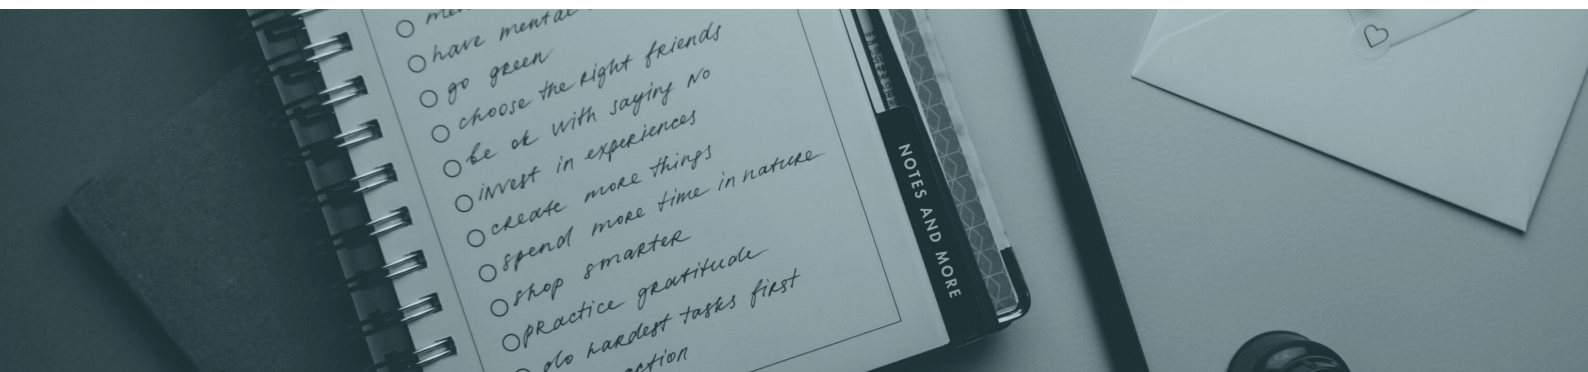 have mental
go green
choose the right friends
be ok with saying no
invest in experiences
create more things
spend more time in nature
shop smarter
practice gratitude
do hardest tasks first
NOTES AND MORE